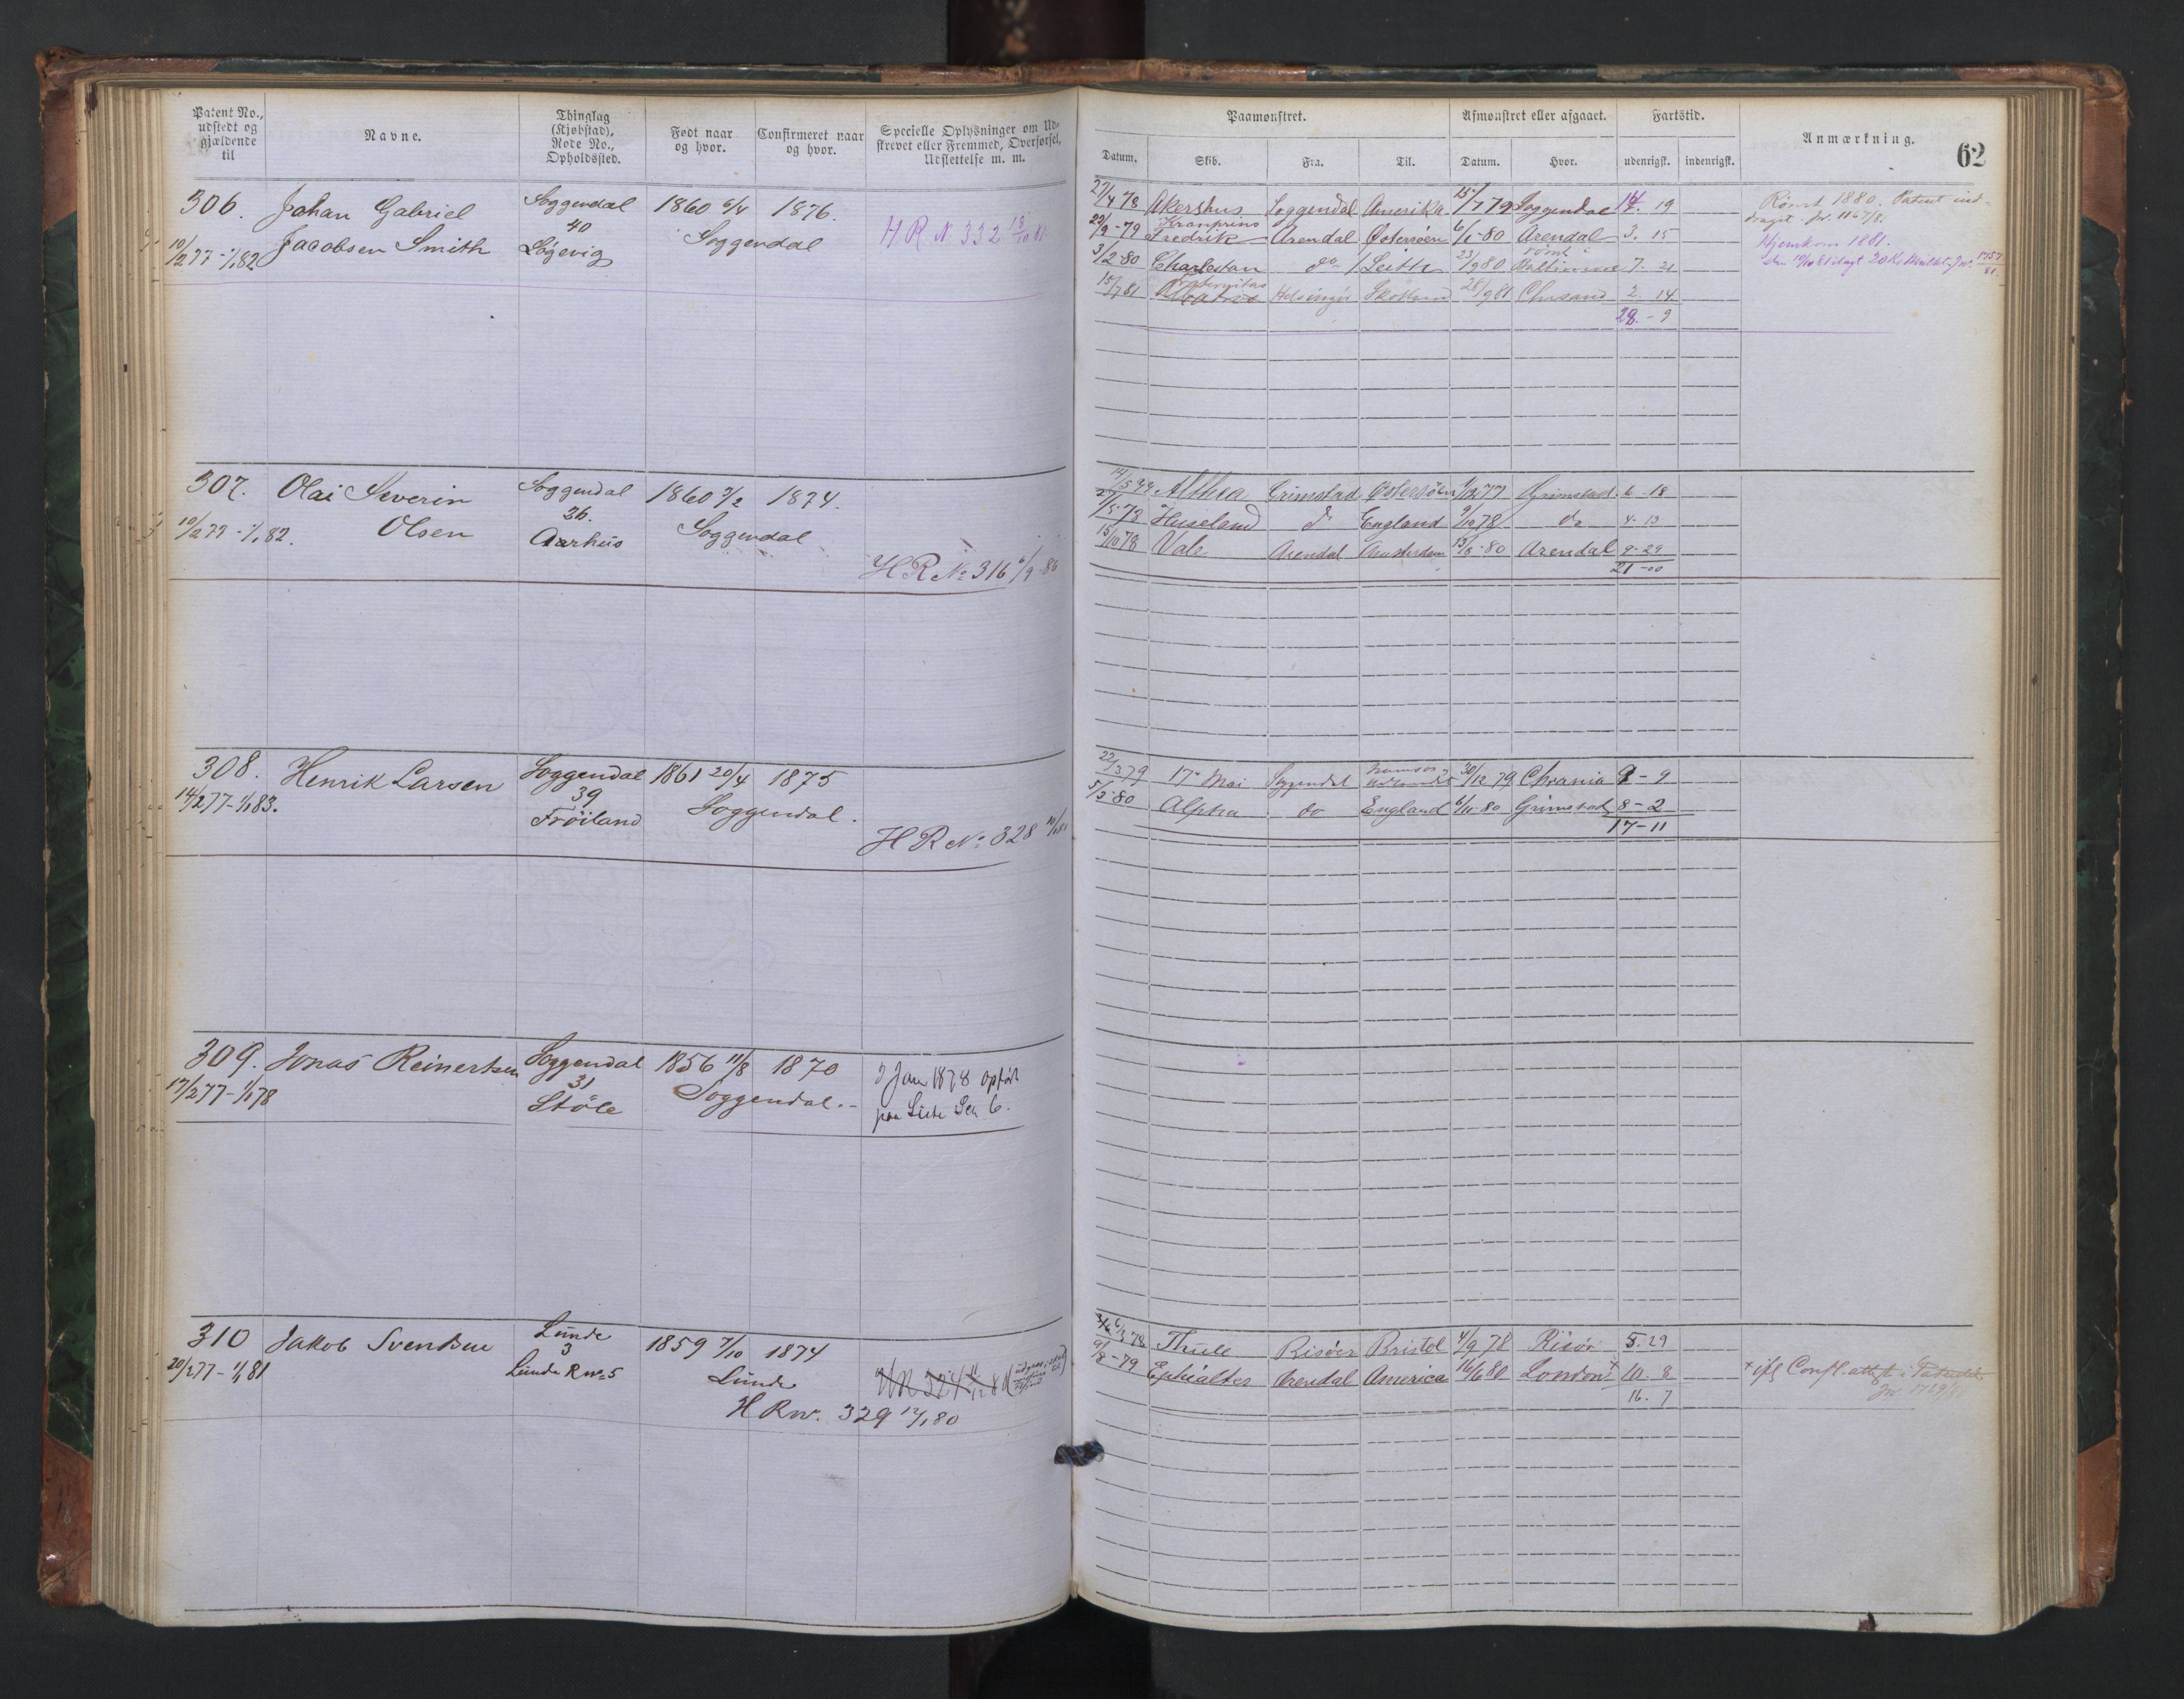 Patent No., udstedt og gjældende til
Navne.
Thinglag (Kjøbstad), Rode No., Opholdssted.
Født naar og hvor.
Confirmeret naar og hvor.
Specielle Oplysninger om Udskrevet eller Fremmed, Overførsel, Udslettelse m. m.
Paamønstret.
Afmønstret eller afgaaet.
Fartstid.
Anmærkning.
62
Datum.
Skib.
Fra.
Til.
Datum.
Hvor.
udenrigsk.
indenrigsk.
306. Johan Gabriel Soggendal 1860 6/4 1876.
10/2 77 - 1/1 82 Jacobsen Smith 40 Løgevig Soggendal H R N 332 18/10 81
27/4 78 Akershus Soggendal Amerika 15/7 79 Soggendal 14. 19 Rømt 1880. Patent ind-
draget. Jr. 1167/8.
22/9 - 79 Kronprins Fredrik Arendal Østersøen 6/1 - 80 Arendal 3. 15 Hjemkom 1881.
3/2 80 Charlestan do Leith 23/9 80 rømt i Baltimore 7. 21
15/7 81 Helsingør Skotland 28/9 81 Chrsand 2. 14
28. - 9
307. Olai Severin Soggendal 1860 7/2 1874.
10/2 77 - 1/1 82. Olsen 36. Aarhus Soggendal
H R No 316 6/9 - 80
14/5 77 Althea Grimstad Østersøen 1/12 77 Grimstad 6 - 18
27/5 78 Huseland do England 9/10 78 do 4 - 13
15/10 78 Vale Arendal Amsterdam 13/8 - 80 Arendal 9 - 29
21 - 00
308. Henrik Larsen Soggendal 1861 20/4 1875
14/2 77 - 1/1 83. 39 Frøiland Soggendal.
H R No 328
22/3 79 17de Mai Soggendal 30/12 79 Chrania 9 - 9
5/5 80 Alpha do England 6/11 - 80 Grimstad 8 - 2
17 - 11
309. Jonas Reinertsen Soggendal 1856 11/8 1870
17/2 77 - 1/1 78 31 Støle Soggendal.
Jan 1878 opført
paa Liste
310 Jakob Svendsen Lunde 1859 7/10 1874
20/2 77 - 1/1 81 3 Lunde R no 5 Lunde
H R no. 329 12/1 80
6/3 78 Thule Risøer Bristol 4/9 78 Risør 5. 29
9/8 - 79 Ephialtes Arendal America 16/6 80 London + 10. 8 + ifg Consl. attest i Patentet
16. 7